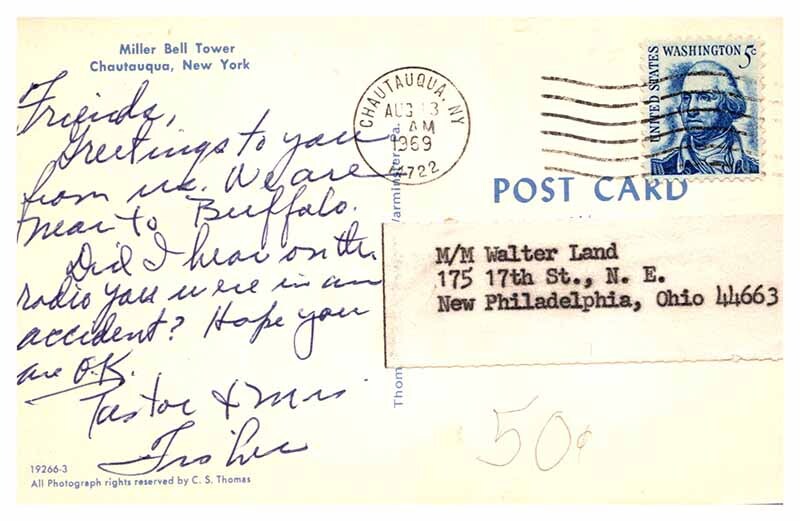 Miller Bell Tower
Chautauqua, New York
Friends,
Greetings to you
from us. We are
near to Buffalo.
Did I hear on the
radio you were in an
accident? Hope you
are O.K.
Pastor & Mrs.
Fisher
19266-3
All Photograph rights reserved by C. S. Thomas
CHAUTAUQUA, NY
AUG 13
AM
1969
14722
UNITED STATES
WASHINGTON 5¢
POST CARD
M/M Walter Land
175 17th St., N. E.
New Philadelphia, Ohio 44663
Thom
Warminster, Pa.
50¢